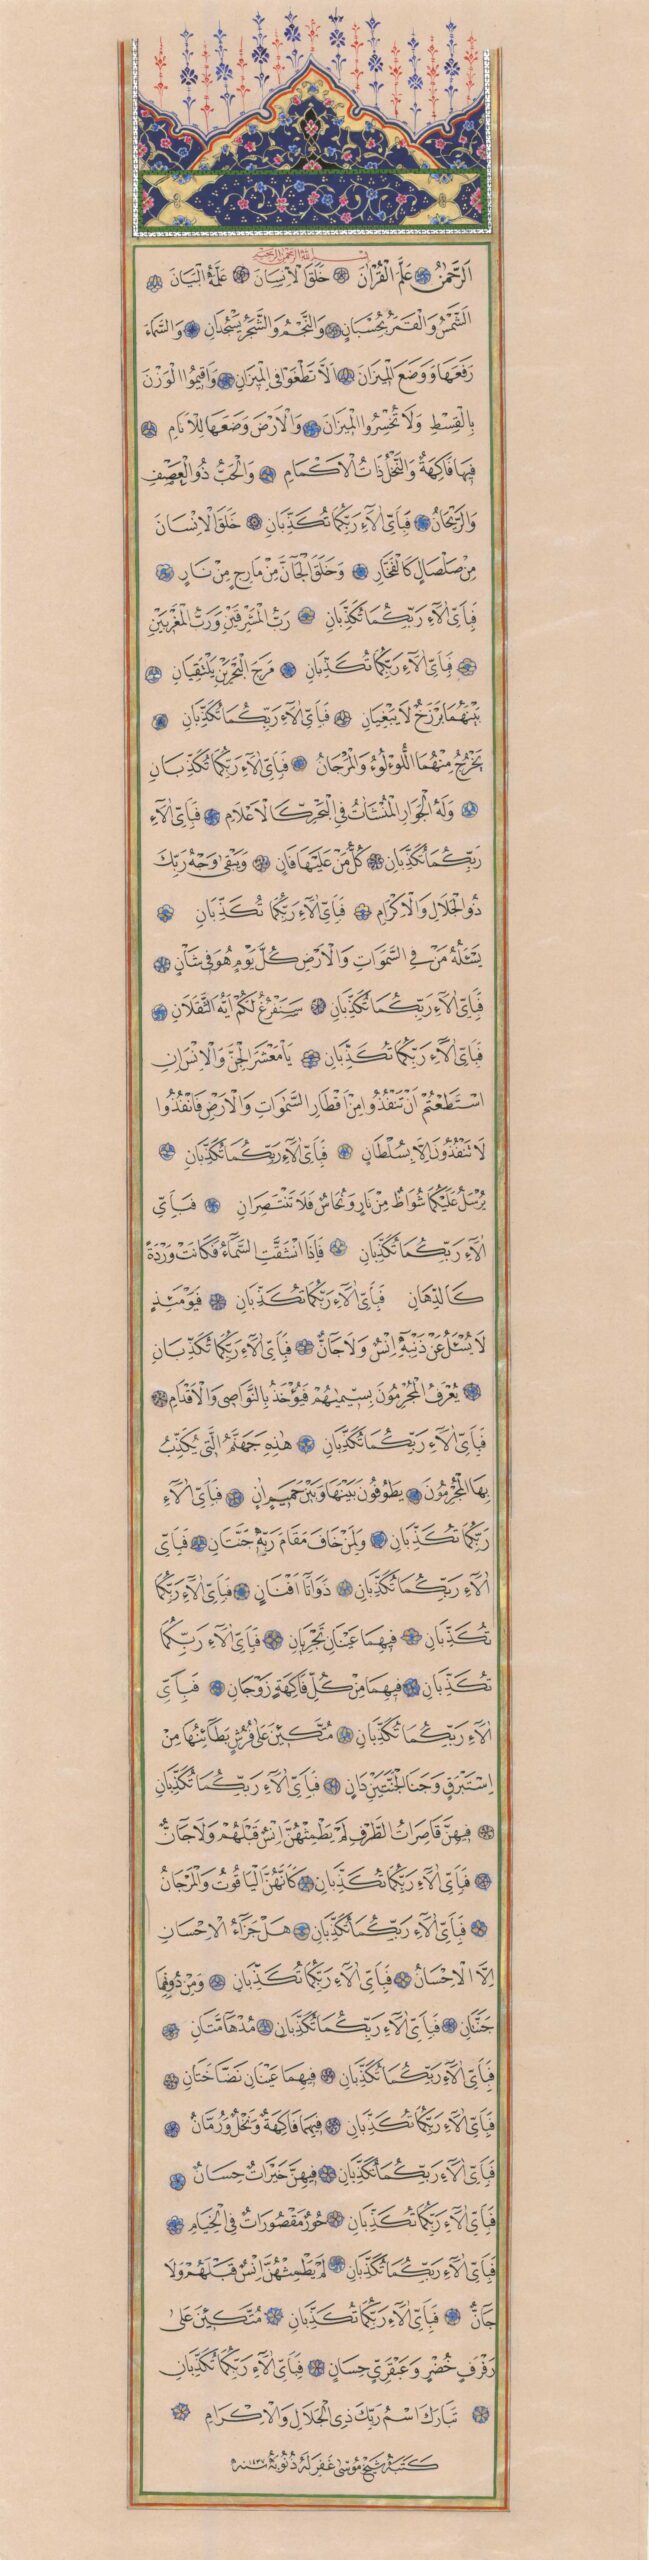 بسم الله الرحمن الرحيم
اَلرَّحْمٰنُ عَلَّمَ الْقُرْاٰنَ خَلَقَ الْاِنْسَانَ عَلَّمَهُ الْبَيَانَ
اَلشَّمْسُ وَالْقَمَرُ بِحُسْبَانٍ وَالنَّجْمُ وَالشَّجَرُ يَسْجُدَانِ وَالسَّمَاءَ
رَفَعَهَا وَوَضَعَ الْمِيزَانَ اَلَّا تَطْغَوْا فِى الْمِيزَانِ وَاَقِيمُوا الْوَزْنَ
بِالْقِسْطِ وَلَا تُخْسِرُوا الْمِيزَانَ وَالْاَرْضَ وَضَعَهَا لِلْاَنَامِ
فِيهَا فَاكِهَةٌ وَالنَّخْلُ ذَاتُ الْاَكْمَامِ وَالْحَبُّ ذُو الْعَصْفِ
وَالرَّيْحَانُ فَبِاَىِّ اٰلَاءِ رَبِّكُمَا تُكَذِّبَانِ خَلَقَ الْاِنْسَانَ
مِنْ صَلْصَالٍ كَالْفَخَّارِ وَخَلَقَ الْجَانَّ مِنْ مَارِجٍ مِنْ نَارٍ
فَبِاَىِّ اٰلَاءِ رَبِّكُمَا تُكَذِّبَانِ رَبُّ الْمَشْرِقَيْنِ وَرَبُّ الْمَغْرِبَيْنِ
فَبِاَىِّ اٰلَاءِ رَبِّكُمَا تُكَذِّبَانِ مَرَجَ الْبَحْرَيْنِ يَلْتَقِيَانِ
بَيْنَهُمَا بَرْزَخٌ لَا يَبْغِيَانِ فَبِاَىِّ اٰلَاءِ رَبِّكُمَا تُكَذِّبَانِ
يَخْرُجُ مِنْهُمَا اللُّؤْلُؤُ وَالْمَرْجَانُ فَبِاَىِّ اٰلَاءِ رَبِّكُمَا تُكَذِّبَانِ
وَلَهُ الْجَوَارِ الْمُنْشَاٰتُ فِى الْبَحْرِ كَالْاَعْلَامِ فَبِاَىِّ اٰلَاءِ
رَبِّكُمَا تُكَذِّبَانِ كُلُّ مَنْ عَلَيْهَا فَانٍ وَيَبْقٰى وَجْهُ رَبِّكَ
ذُو الْجَلَالِ وَالْاِكْرَامِ فَبِاَىِّ اٰلَاءِ رَبِّكُمَا تُكَذِّبَانِ
يَسْئَلُهُ مَنْ فِى السَّمٰوَاتِ وَالْاَرْضِ كُلَّ يَوْمٍ هُوَ فِى شَاْنٍ
فَبِاَىِّ اٰلَاءِ رَبِّكُمَا تُكَذِّبَانِ سَنَفْرُغُ لَكُمْ اَيُّهَ الثَّقَلَانِ
فَبِاَىِّ اٰلَاءِ رَبِّكُمَا تُكَذِّبَانِ يَا مَعْشَرَ الْجِنِّ وَالْاِنْسِ اِنِ
اسْتَطَعْتُمْ اَنْ تَنْفُذُوا مِنْ اَقْطَارِ السَّمٰوَاتِ وَالْاَرْضِ فَانْفُذُوا
لَا تَنْفُذُونَ اِلَّا بِسُلْطَانٍ فَبِاَىِّ اٰلَاءِ رَبِّكُمَا تُكَذِّبَانِ
يُرْسَلُ عَلَيْكُمَا شُوَاظٌ مِنْ نَارٍ وَنُحَاسٌ فَلَا تَنْتَصِرَانِ فَبِاَىِّ
اٰلَاءِ رَبِّكُمَا تُكَذِّبَانِ فَاِذَا انْشَقَّتِ السَّمَاءُ فَكَانَتْ وَرْدَةً
كَالدِّهَانِ فَبِاَىِّ اٰلَاءِ رَبِّكُمَا تُكَذِّبَانِ فَيَوْمَئِذٍ
لَا يُسْئَلُ عَنْ ذَنْبِهِ اِنْسٌ وَلَا جَانٌّ فَبِاَىِّ اٰلَاءِ رَبِّكُمَا تُكَذِّبَانِ
يُعْرَفُ الْمُجْرِمُونَ بِسِيمٰيهُمْ فَيُؤْخَذُ بِالنَّوَاصِى وَالْاَقْدَامِ
فَبِاَىِّ اٰلَاءِ رَبِّكُمَا تُكَذِّبَانِ هٰذِهِ جَهَنَّمُ الَّتِى يُكَذِّبُ
بِهَا الْمُجْرِمُونَ يَطُوفُونَ بَيْنَهَا وَبَيْنَ حَمِيمٍ اٰنٍ فَبِاَىِّ اٰلَاءِ
رَبِّكُمَا تُكَذِّبَانِ وَلِمَنْ خَافَ مَقَامَ رَبِّهِ جَنَّتَانِ فَبِاَىِّ
اٰلَاءِ رَبِّكُمَا تُكَذِّبَانِ ذَوَاتَا اَفْنَانٍ فَبِاَىِّ اٰلَاءِ رَبِّكُمَا
تُكَذِّبَانِ فِيهِمَا عَيْنَانِ تَجْرِيَانِ فَبِاَىِّ اٰلَاءِ رَبِّكُمَا
تُكَذِّبَانِ فِيهِمَا مِنْ كُلِّ فَاكِهَةٍ زَوْجَانِ فَبِاَىِّ
اٰلَاءِ رَبِّكُمَا تُكَذِّبَانِ مُتَّكِئِينَ عَلٰى فُرُشٍ بَطَائِنُهَا مِنْ
اِسْتَبْرَقٍ وَجَنَا الْجَنَّتَيْنِ دَانٍ فَبِاَىِّ اٰلَاءِ رَبِّكُمَا تُكَذِّبَانِ
فِيهِنَّ قَاصِرَاتُ الطَّرْفِ لَمْ يَطْمِثْهُنَّ اِنْسٌ قَبْلَهُمْ وَلَا جَانٌّ
فَبِاَىِّ اٰلَاءِ رَبِّكُمَا تُكَذِّبَانِ كَاَنَّهُنَّ الْيَاقُوتُ وَالْمَرْجَانُ
فَبِاَىِّ اٰلَاءِ رَبِّكُمَا تُكَذِّبَانِ هَلْ جَزَاءُ الْاِحْسَانِ
اِلَّا الْاِحْسَانُ فَبِاَىِّ اٰلَاءِ رَبِّكُمَا تُكَذِّبَانِ وَمِنْ دُونِهِمَا
جَنَّتَانِ فَبِاَىِّ اٰلَاءِ رَبِّكُمَا تُكَذِّبَانِ مُدْهَامَّتَانِ
فَبِاَىِّ اٰلَاءِ رَبِّكُمَا تُكَذِّبَانِ فِيهِمَا عَيْنَانِ نَضَّاخَتَانِ
فَبِاَىِّ اٰلَاءِ رَبِّكُمَا تُكَذِّبَانِ فِيهِمَا فَاكِهَةٌ وَنَخْلٌ وَرُمَّانٌ
فَبِاَىِّ اٰلَاءِ رَبِّكُمَا تُكَذِّبَانِ فِيهِنَّ خَيْرَاتٌ حِسَانٌ
فَبِاَىِّ اٰلَاءِ رَبِّكُمَا تُكَذِّبَانِ حُورٌ مَقْصُورَاتٌ فِى الْخِيَامِ
فَبِاَىِّ اٰلَاءِ رَبِّكُمَا تُكَذِّبَانِ لَمْ يَطْمِثْهُنَّ اِنْسٌ قَبْلَهُمْ وَلَا
جَانٌّ فَبِاَىِّ اٰلَاءِ رَبِّكُمَا تُكَذِّبَانِ مُتَّكِئِينَ عَلٰى
رَفْرَفٍ خُضْرٍ وَعَبْقَرِىٍّ حِسَانٍ فَبِاَىِّ اٰلَاءِ رَبِّكُمَا تُكَذِّبَانِ
تَبَارَكَ اسْمُ رَبِّكَ ذِى الْجَلَالِ وَالْاِكْرَامِ
كَتَبَهُ شَيْخ مُوسٰى غُفِرَ لَهُ ذُنُوبُهُ سنه ١٤٣٧